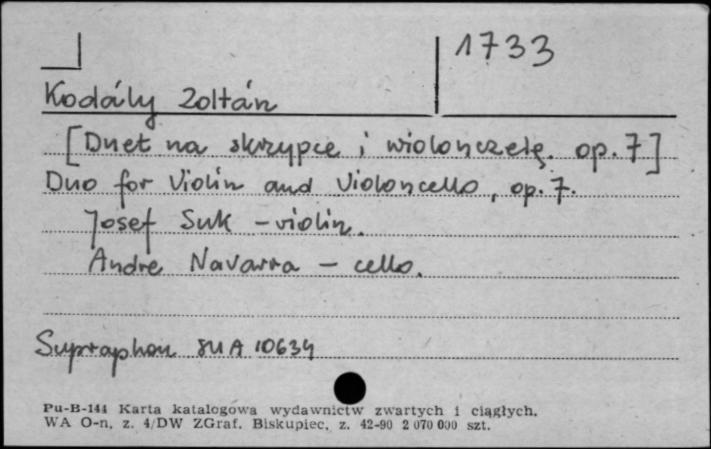 1733
Kodály Zoltán
[Duet na skrzypce i wiolonczelę. op. 7]
Duo for Violin and Violoncello, op. 7.
Josef Suk – violin.
Andre Navarra – cello.
Supraphon SUA 10634
Pu-B-144 Karta katalogowa wydawnictw zwartych i ciągłych.
WA O-n, z. 4/DW ZGraf. Biskupiec, z. 42-90 2 070 000 szt.